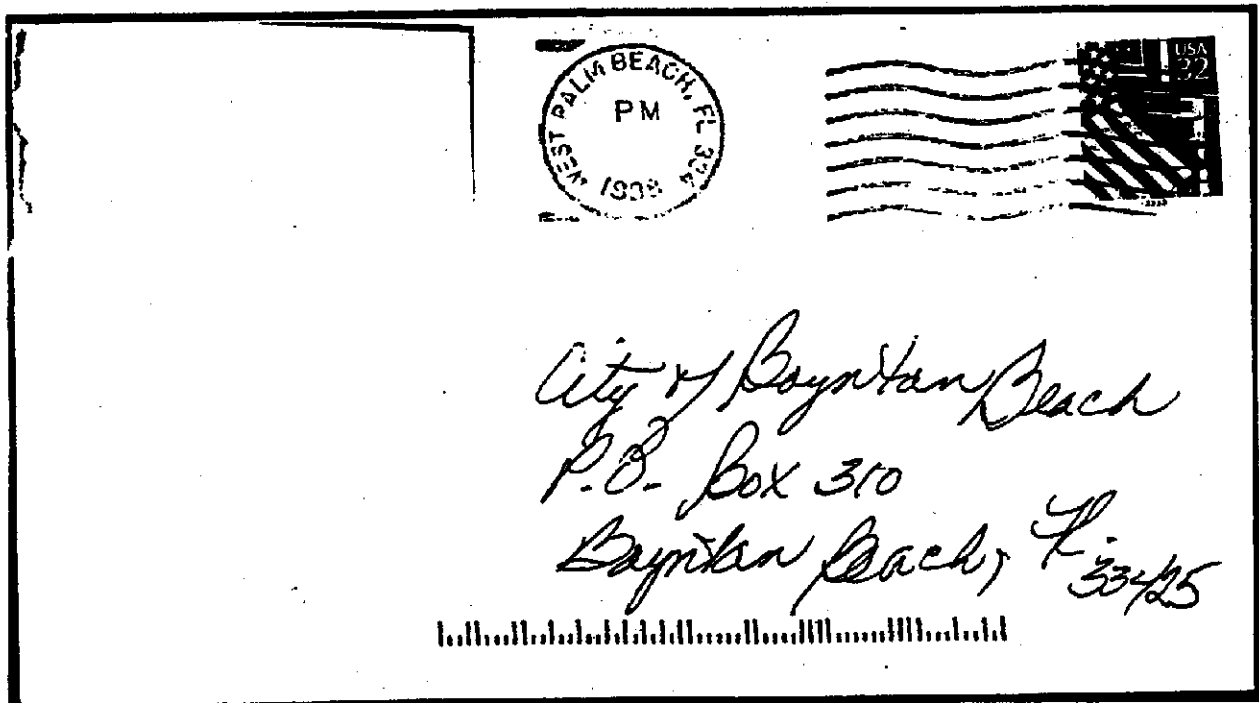 WEST PALM BEACH, FL 334
PM
USA
32
City of Boynton Beach
P.O. Box 310
Boynton Beach, Fl.
33425